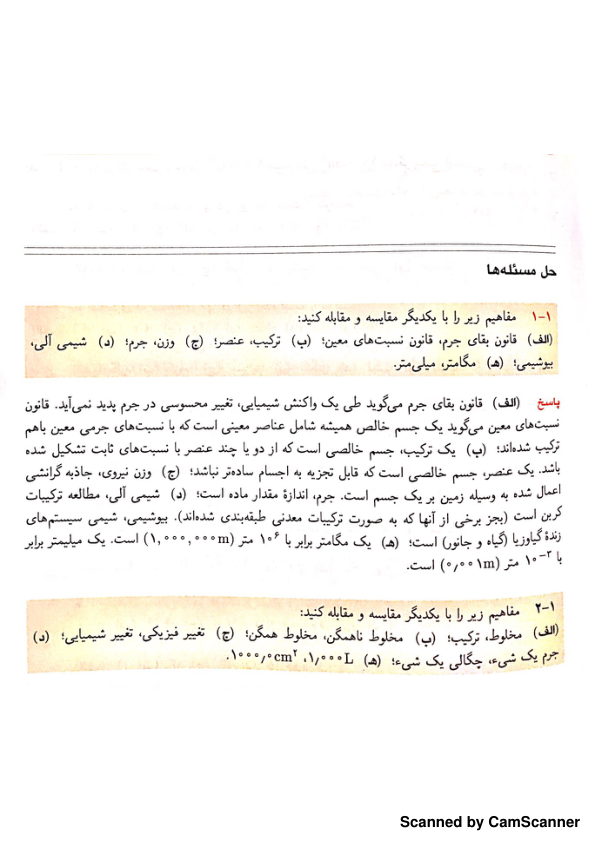 حل مسئله‌ها
۱-۱ مفاهیم زیر را با یکدیگر مقایسه و مقابله کنید:
(الف) قانون بقای جرم، قانون نسبت‌های معین؛ (ب) ترکیب، عنصر؛ (ج) وزن، جرم؛ (د) شیمی آلی،
بیوشیمی؛ (هـ) مگامتر، میلی‌متر.
پاسخ (الف) قانون بقای جرم می‌گوید طی یک واکنش شیمیایی، تغییر محسوسی در جرم پدید نمی‌آید. قانون
نسبت‌های معین می‌گوید یک جسم خالص همیشه شامل عناصر معینی است که با نسبت‌های جرمی معین باهم
ترکیب شده‌اند؛ (ب) یک ترکیب، جسم خالصی است که از دو یا چند عنصر با نسبت‌های ثابت تشکیل شده
باشد. یک عنصر، جسم خالصی است که قابل تجزیه به اجسام ساده‌تر نباشد؛ (ج) وزن نیروی، جاذبه گرانشی
اعمال شده به وسیله زمین بر یک جسم است. جرم، اندازهٔ مقدار ماده است؛ (د) شیمی آلی، مطالعه ترکیبات
کربن است (بجز برخی از آنها که به صورت ترکیبات معدنی طبقه‌بندی شده‌اند). بیوشیمی، شیمی سیستم‌های
زندهٔ گیاوزیا (گیاه و جانور) است؛ (هـ) یک مگامتر برابر با ۱۰⁶ متر (۱,۰۰۰,۰۰۰m) است. یک میلیمتر برابر
با ۱۰⁻³ متر (۰٫۰۰۱m) است.
۲-۱ مفاهیم زیر را با یکدیگر مقایسه و مقابله کنید:
(الف) مخلوط، ترکیب؛ (ب) مخلوط ناهمگن، مخلوط همگن؛ (ج) تغییر فیزیکی، تغییر شیمیایی؛ (د)
جرم یک شیء، چگالی یک شیء؛ (هـ) ۱٫۰۰۰L، ۱۰۰۰٫۰cm².
Scanned by CamScanner